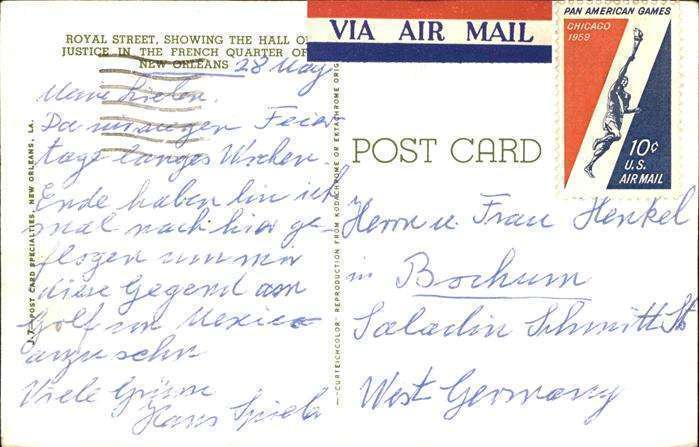 ROYAL STREET, SHOWING THE HALL OF
JUSTICE IN THE FRENCH QUARTER OF
NEW ORLEANS
28 May
Meine Lieben.
Da wir angen Feier
tage langes Wochen
Ende haben bin ich
mal nach hier ge
flogen um mir
diese Gegend am
Golf von Mexico
anzusehn
Viele Grüsse
Hans
J. POST CARD SPECIALTIES, NEW ORLEANS, LA.
CURTEICHCOLOR REPRODUCTION FROM KODACHROME OR EKTACHROME ORIG
VIA AIR MAIL
PAN AMERICAN GAMES
CHICAGO
1959
10¢
U.S.
AIR MAIL
POST CARD
Herrn u. Frau Henkel
in Bochum
Saladin Schmitt St
West Germany